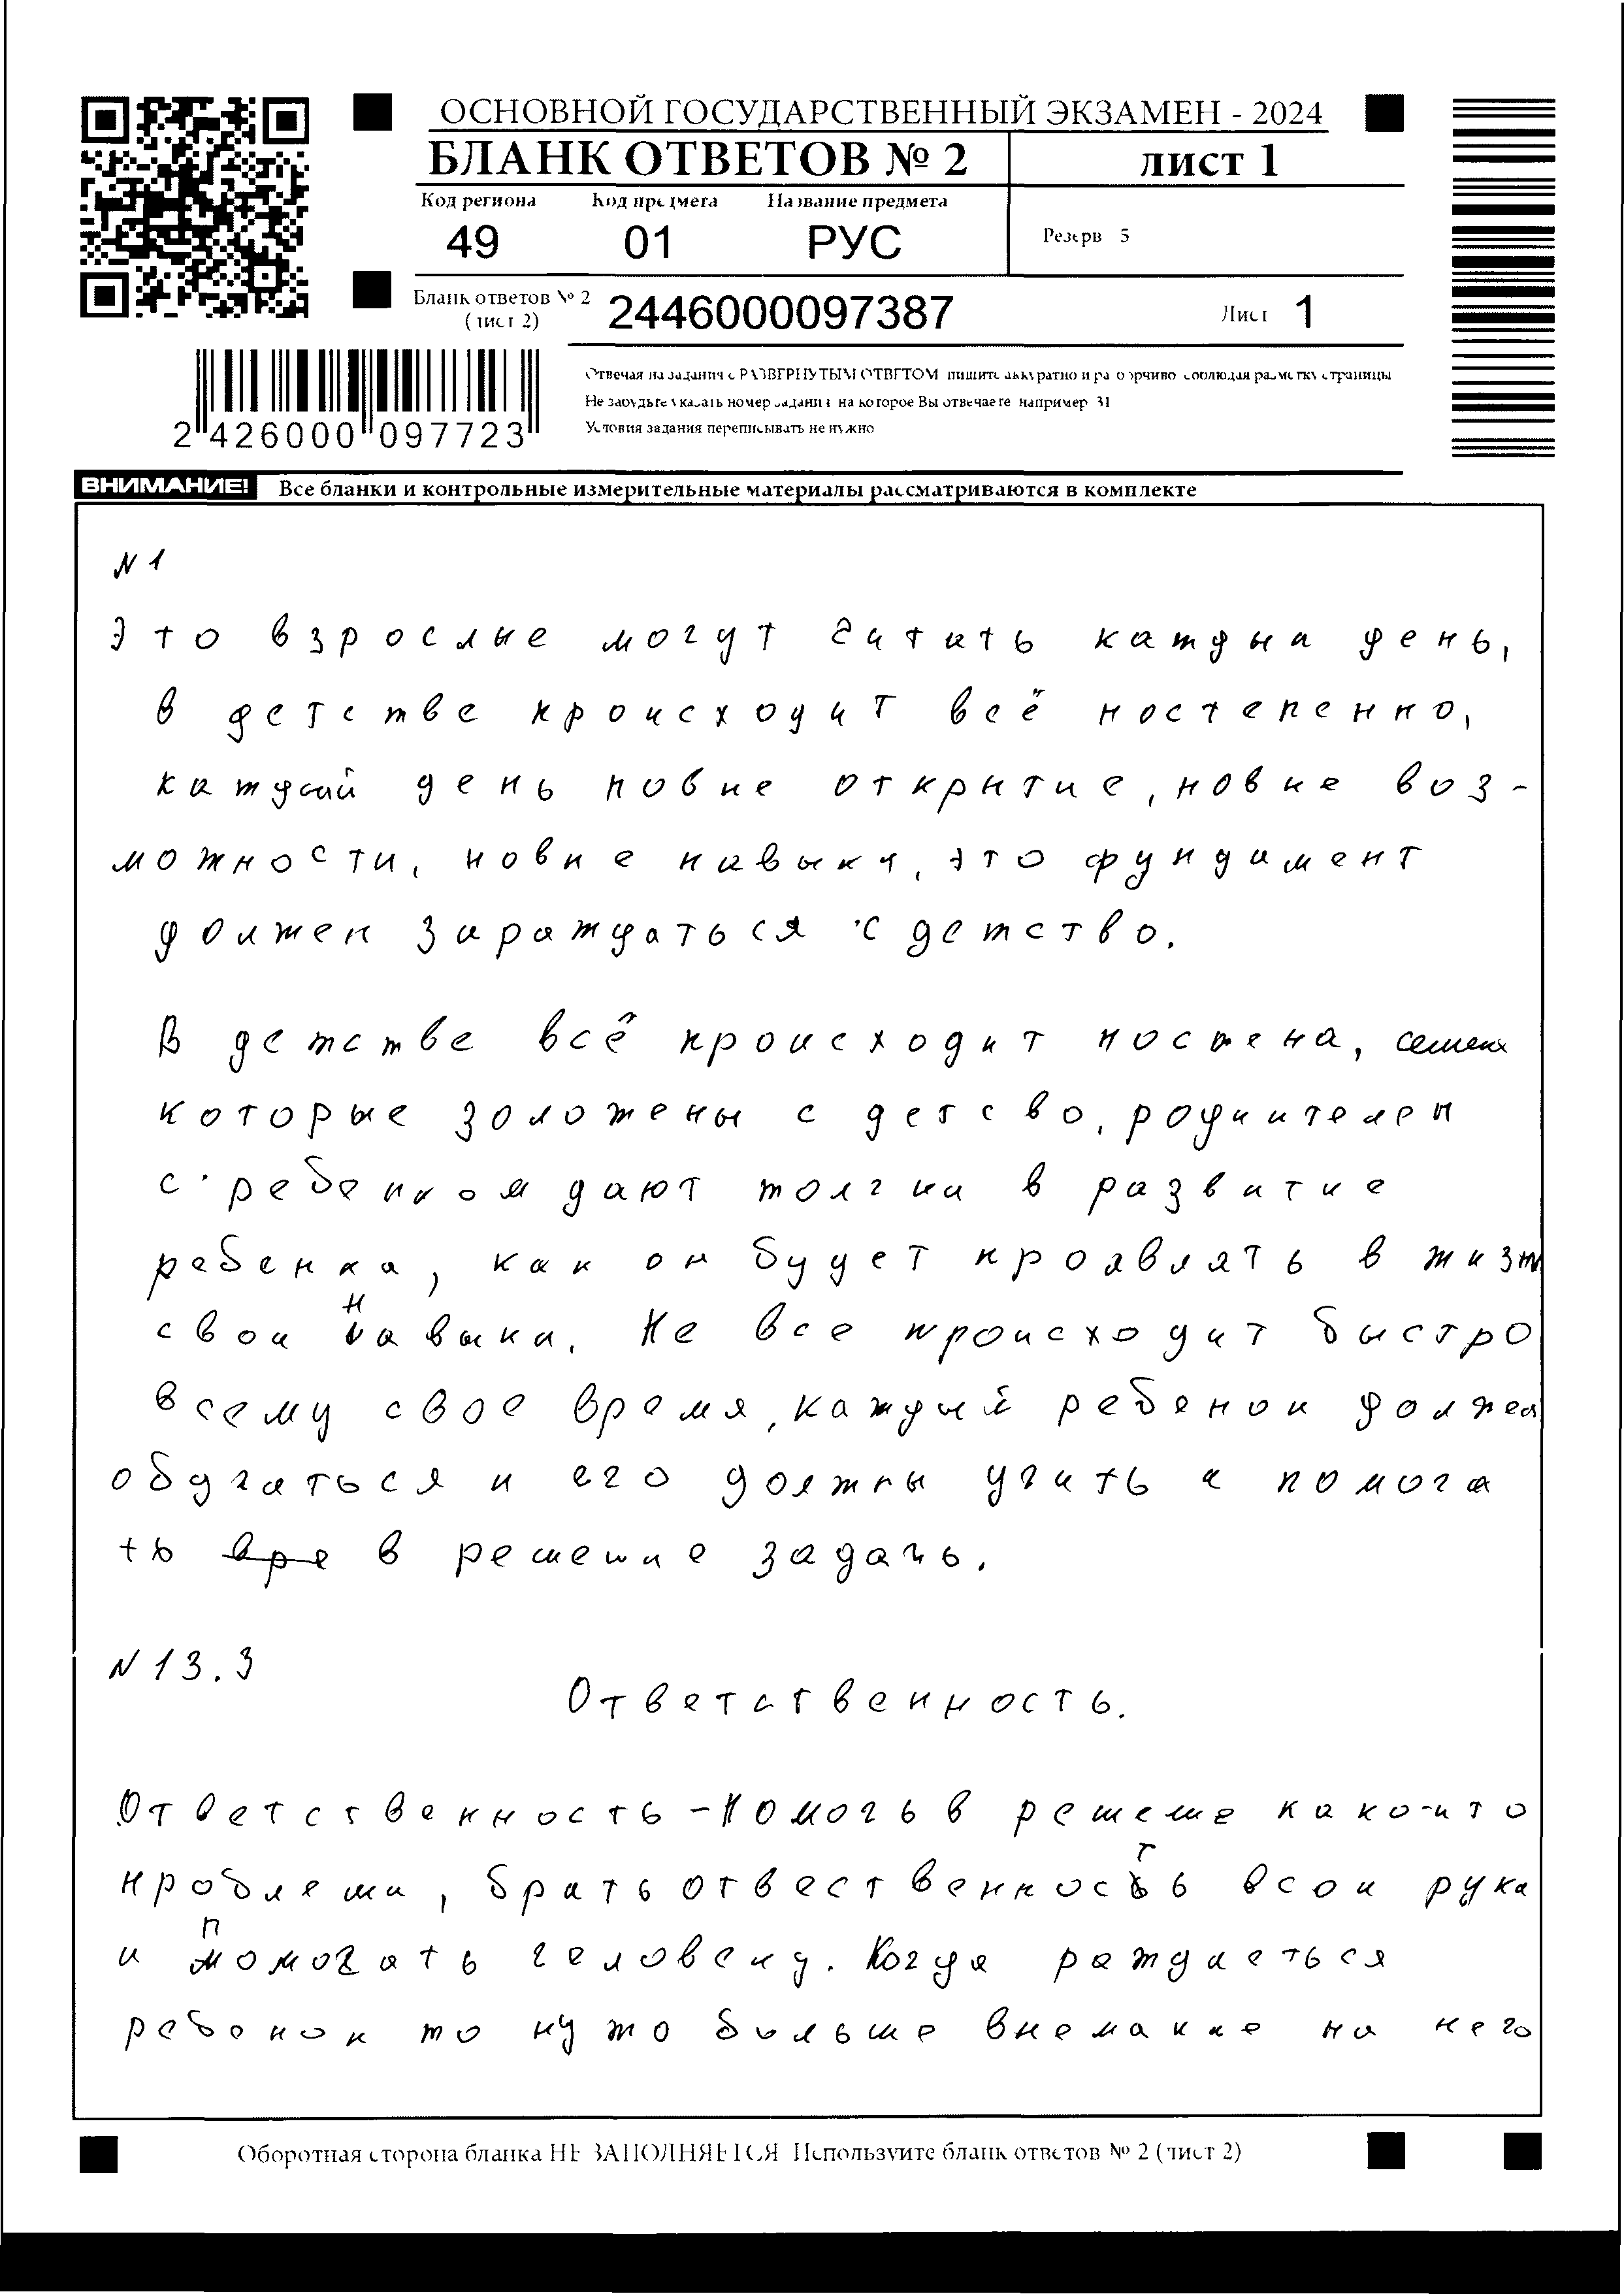 ОСНОВНОЙ ГОСУДАРСТВЕННЫЙ ЭКЗАМЕН - 2024
БЛАНК ОТВЕТОВ № 2
лист 1
Код региона Код предмета Название предмета
49 01 РУС
Резерв 5
Бланк ответов № 2 (лист 2) 2446000097387
Лист 1
Отвечая на задания с РАЗВЕРНУТЫМ ОТВЕТОМ пишите аккуратно и разборчиво соблюдая разметку страницы
Не забудьте указать номер задания на которое Вы отвечаете например 31
Условия задания переписывать не нужно
2 426000 097723
ВНИМАНИЕ! Все бланки и контрольные измерительные материалы рассматриваются в комплекте
N 1
Это взрослые могут читать кажды день,
в детстве происходит всё постепенно,
каждый день новые открытие, новые воз-
можности, новые навыки, это фундамент
должен зараждаться с детство.
В детстве всё происходит постена,
которые золожены с детсво, родиителей
с ребенком дают толчки в развитие
ребенка, как он будет проявлять в жизн
свои навыки. Не все происходит быстро
всему свое время, каждый ребенок должен
обучаться и его должны учить и помога
ть в решение задачь.
N 13.3
Ответственность.
Ответственность - помочь в решеие како-ито
проблемы, брать отвественность всои рука
и помогать человеку. Когда рождаеться
ребонок то нужо больше внемание на него
Оборотная сторона бланка НЕ ЗАПОЛНЯЕТСЯ Используйте бланк ответов № 2 (лист 2)